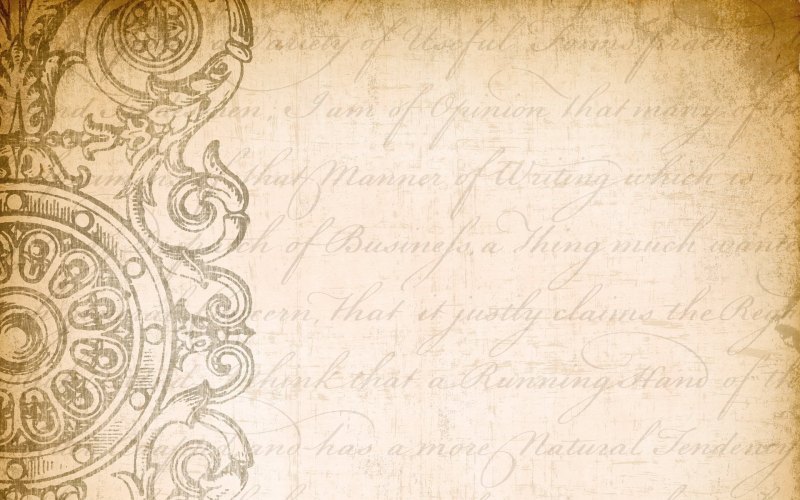 a Variety of Useful Forms practiced
Men, I am of Opinion that many of
that Manner of Writing which is
of Businefs a Thing much
that it justly claims the
think that a Running Hand of
and has a more Natural Tendency